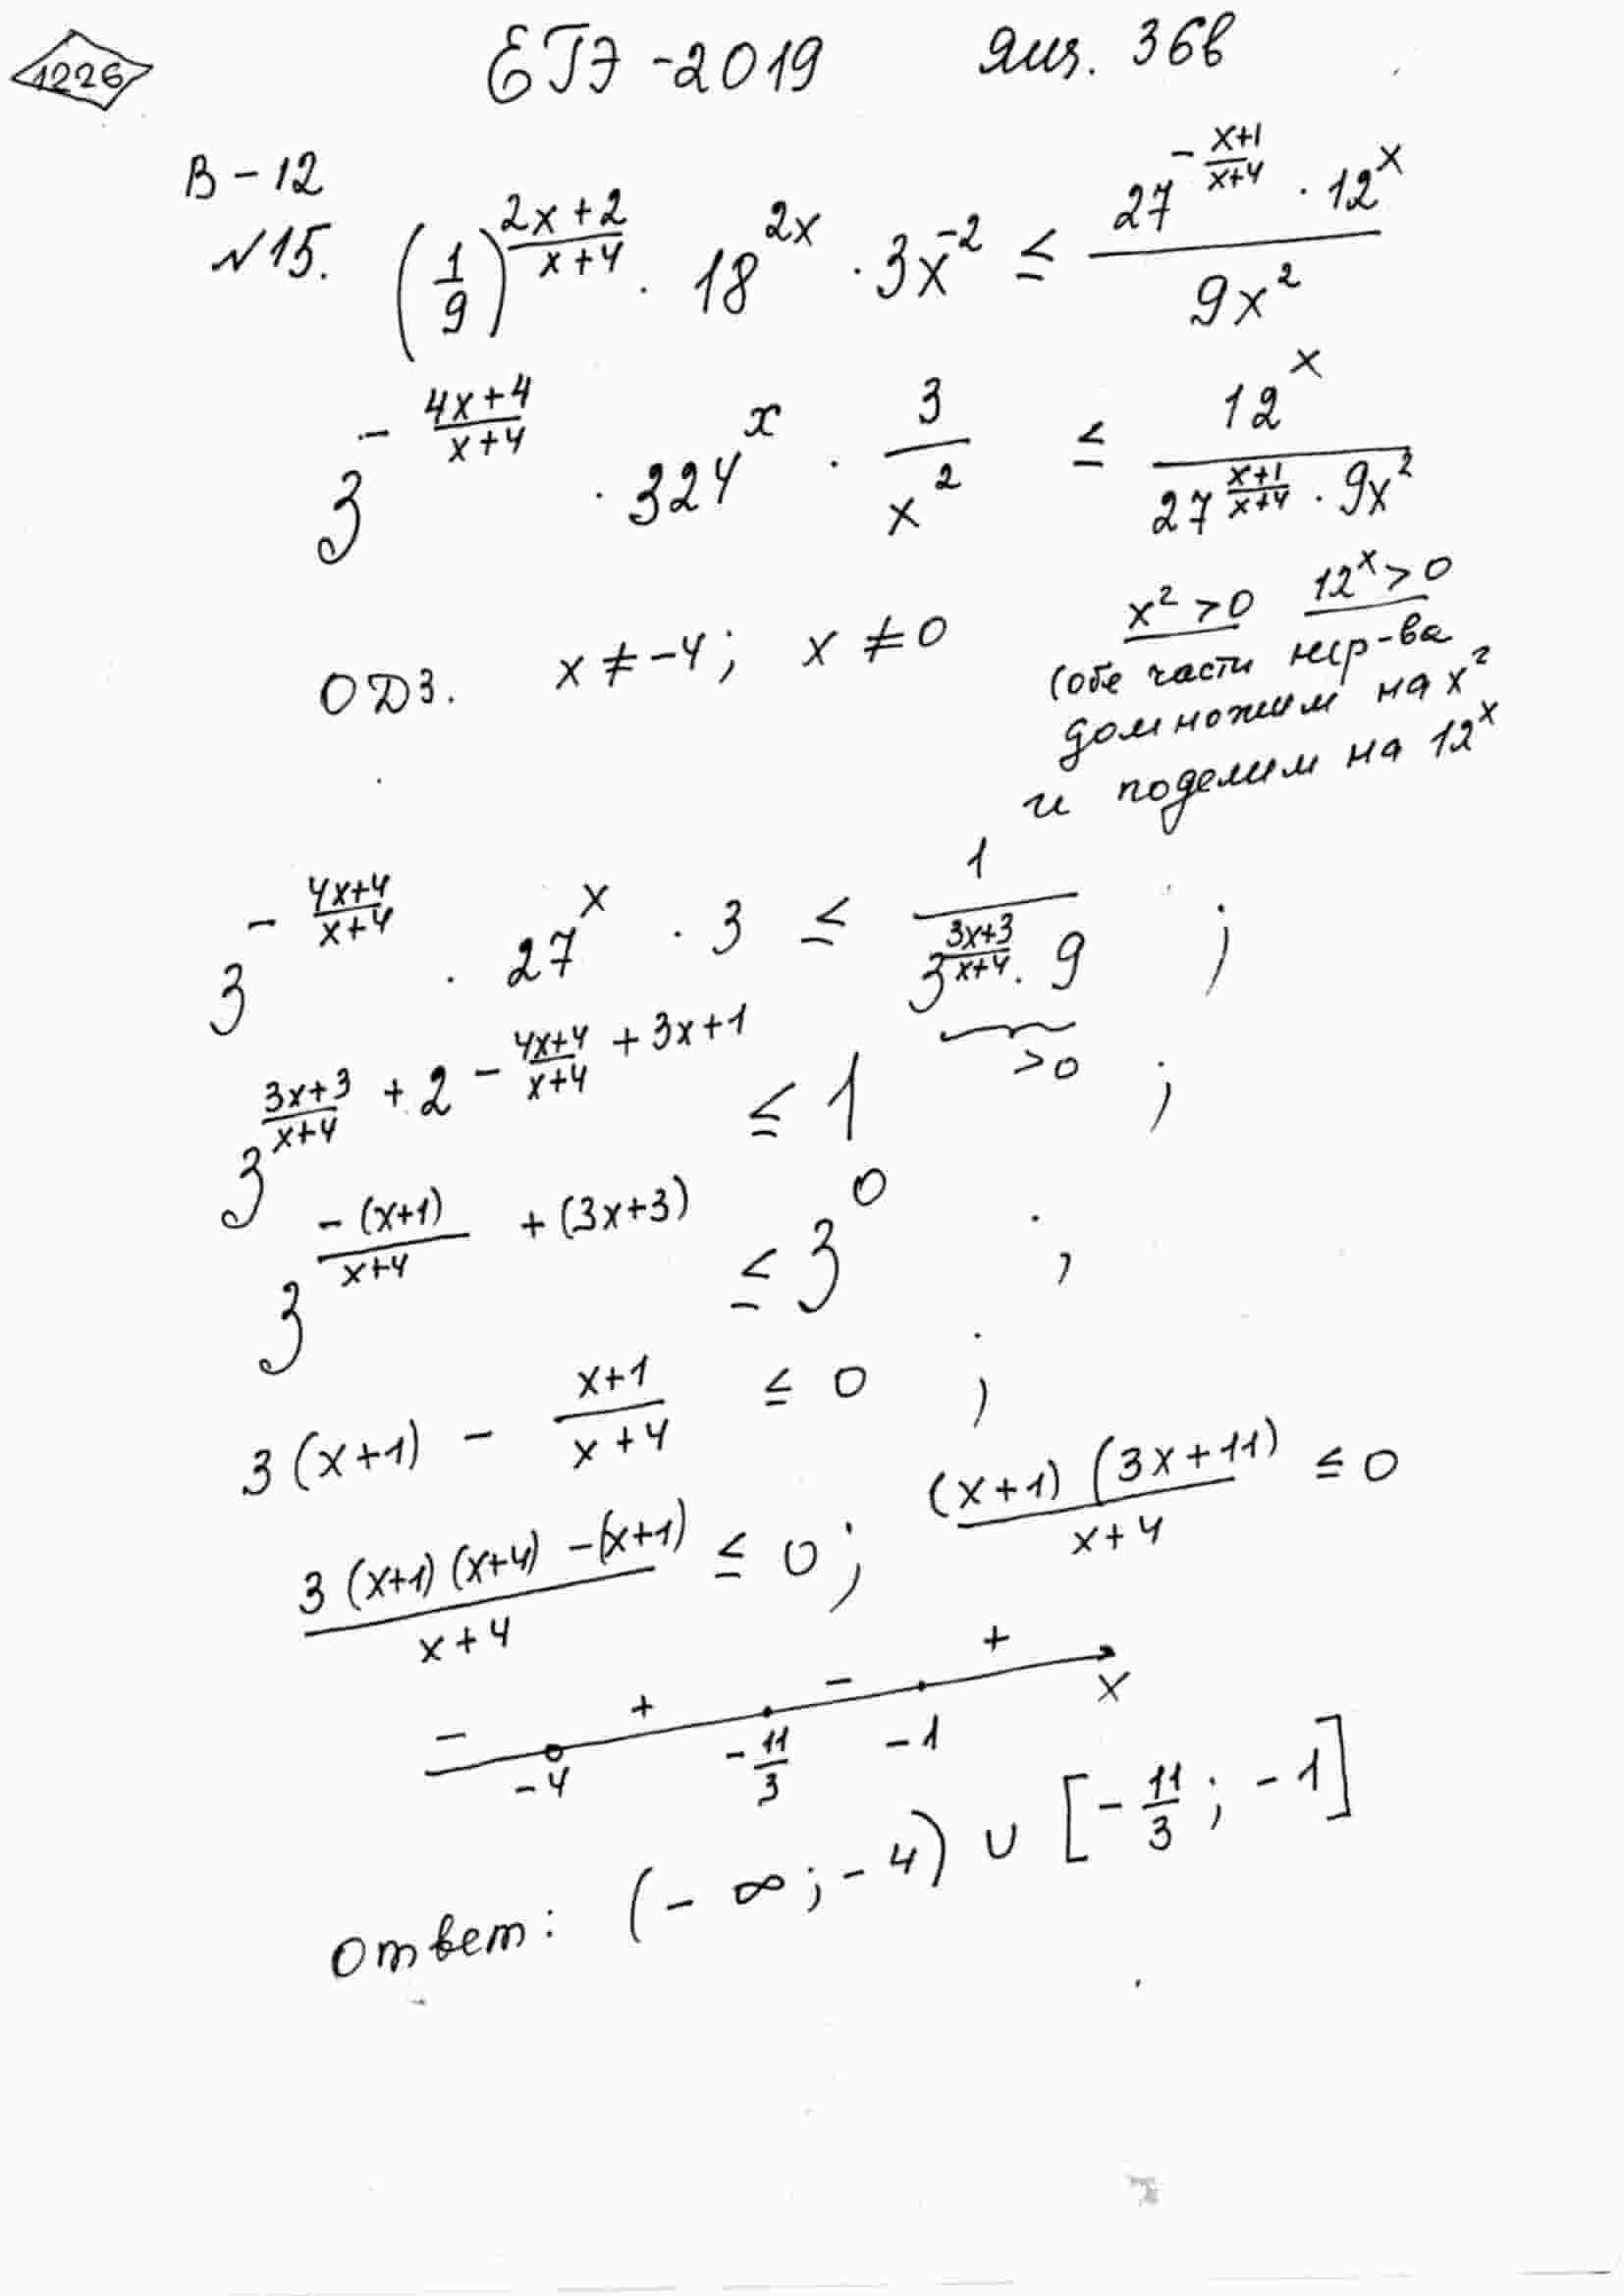 1226 ЕГЭ-2019 Ящ. 36в
В-12
№15. (1/9)^((2x+2)/(x+4)) · 18^(2x) · 3x^(-2) ≤ (27^(-(x+1)/(x+4)) · 12^x)/(9x^2)
3^(-(4x+4)/(x+4)) · 324^x · 3/x^2 ≤ 12^x/(27^((x+1)/(x+4)) · 9x^2)
ОДЗ. x ≠ -4; x ≠ 0
x^2 > 0 12^x > 0
(обе части нер-ва
домножим на x^2
и поделим на 12^x
3^(-(4x+4)/(x+4)) · 27^x · 3 ≤ 1/(3^((3x+3)/(x+4)) · 9) ;
>0
3^((3x+3)/(x+4) + 2 - (4x+4)/(x+4) + 3x+1) ≤ 1 ;
3^(-(x+1)/(x+4) + (3x+3)) ≤ 3^0 ;
3(x+1) - (x+1)/(x+4) ≤ 0 ;
(3(x+1)(x+4) -(x+1))/(x+4) ≤ 0 ; ((x+1)(3x+11))/(x+4) ≤ 0
- + - + x
-4 -11/3 -1
Ответ: (-∞; -4) ∪ [-11/3; -1]